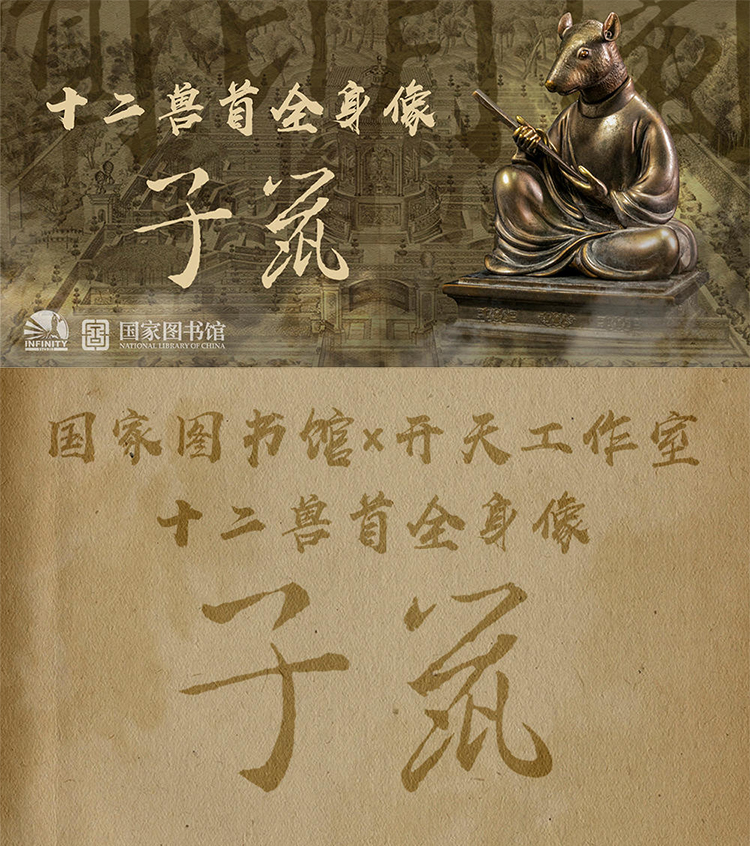 十二兽首全身像
子鼠
INFINITY
STUDIO
国家图书馆
NATIONAL LIBRARY OF CHINA
国家图书馆x开天工作室
十二兽首全身像
子鼠